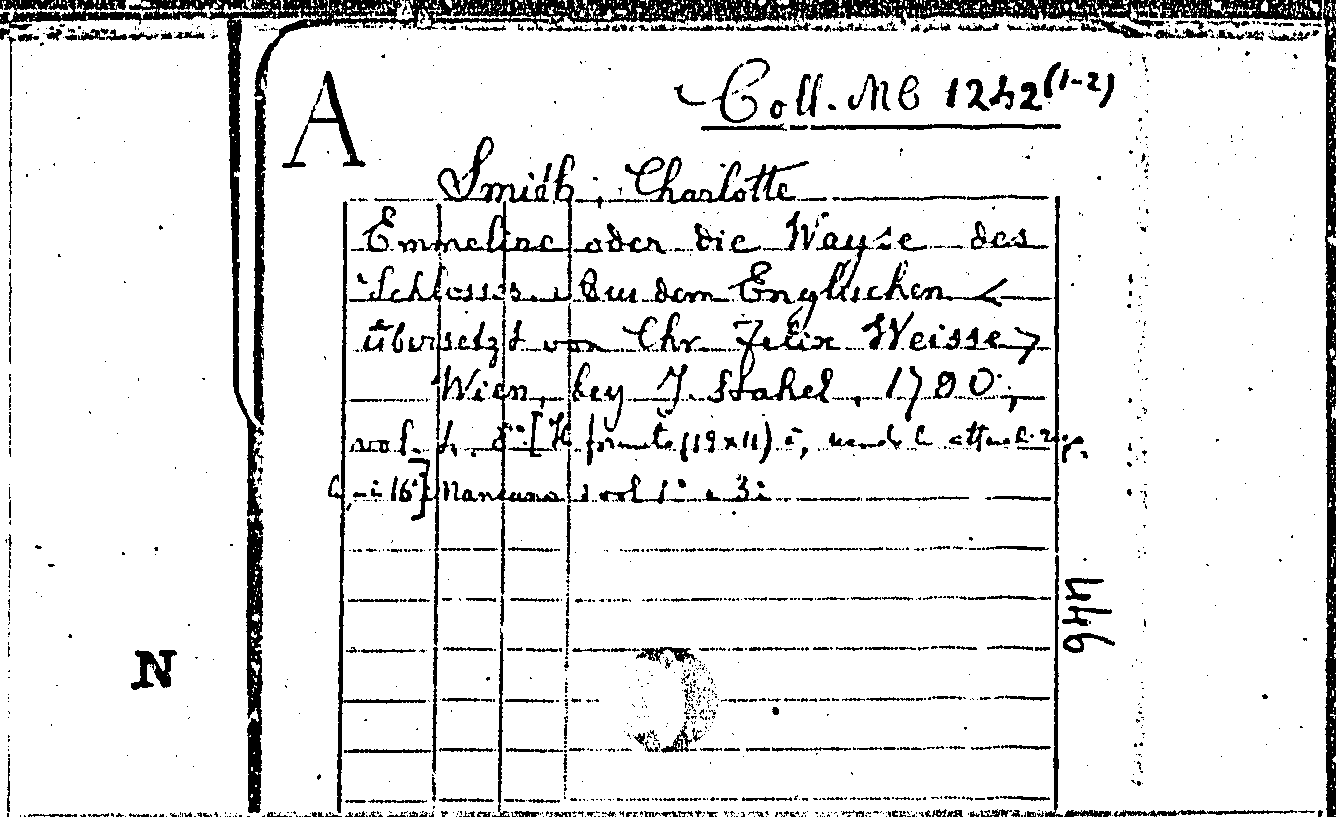 A
Coll. MC 1242 (1-2)
Smith, Charlotte
Emmeline oder die Wayse des
Schlosses. Aus dem Englischen <
übersetzt von Chr. Felix Weisse >
Wien, bey J. Stahel, 1790;
vol. 4, 8° [Il formato (19x11) è,
16°] Mancano i vol 1° e 3°
446
N